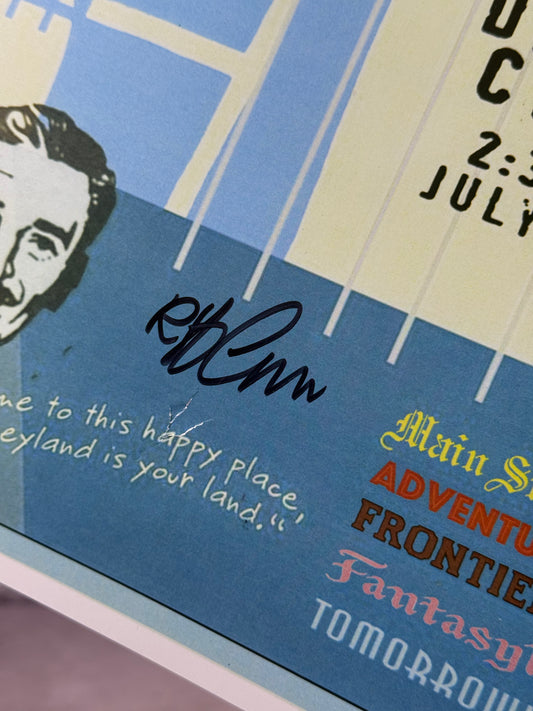 2:3
JULY
me to this happy place,
eyland is your land."
Main S
ADVENTU
FRONTIE
Fantasy
TOMORROW